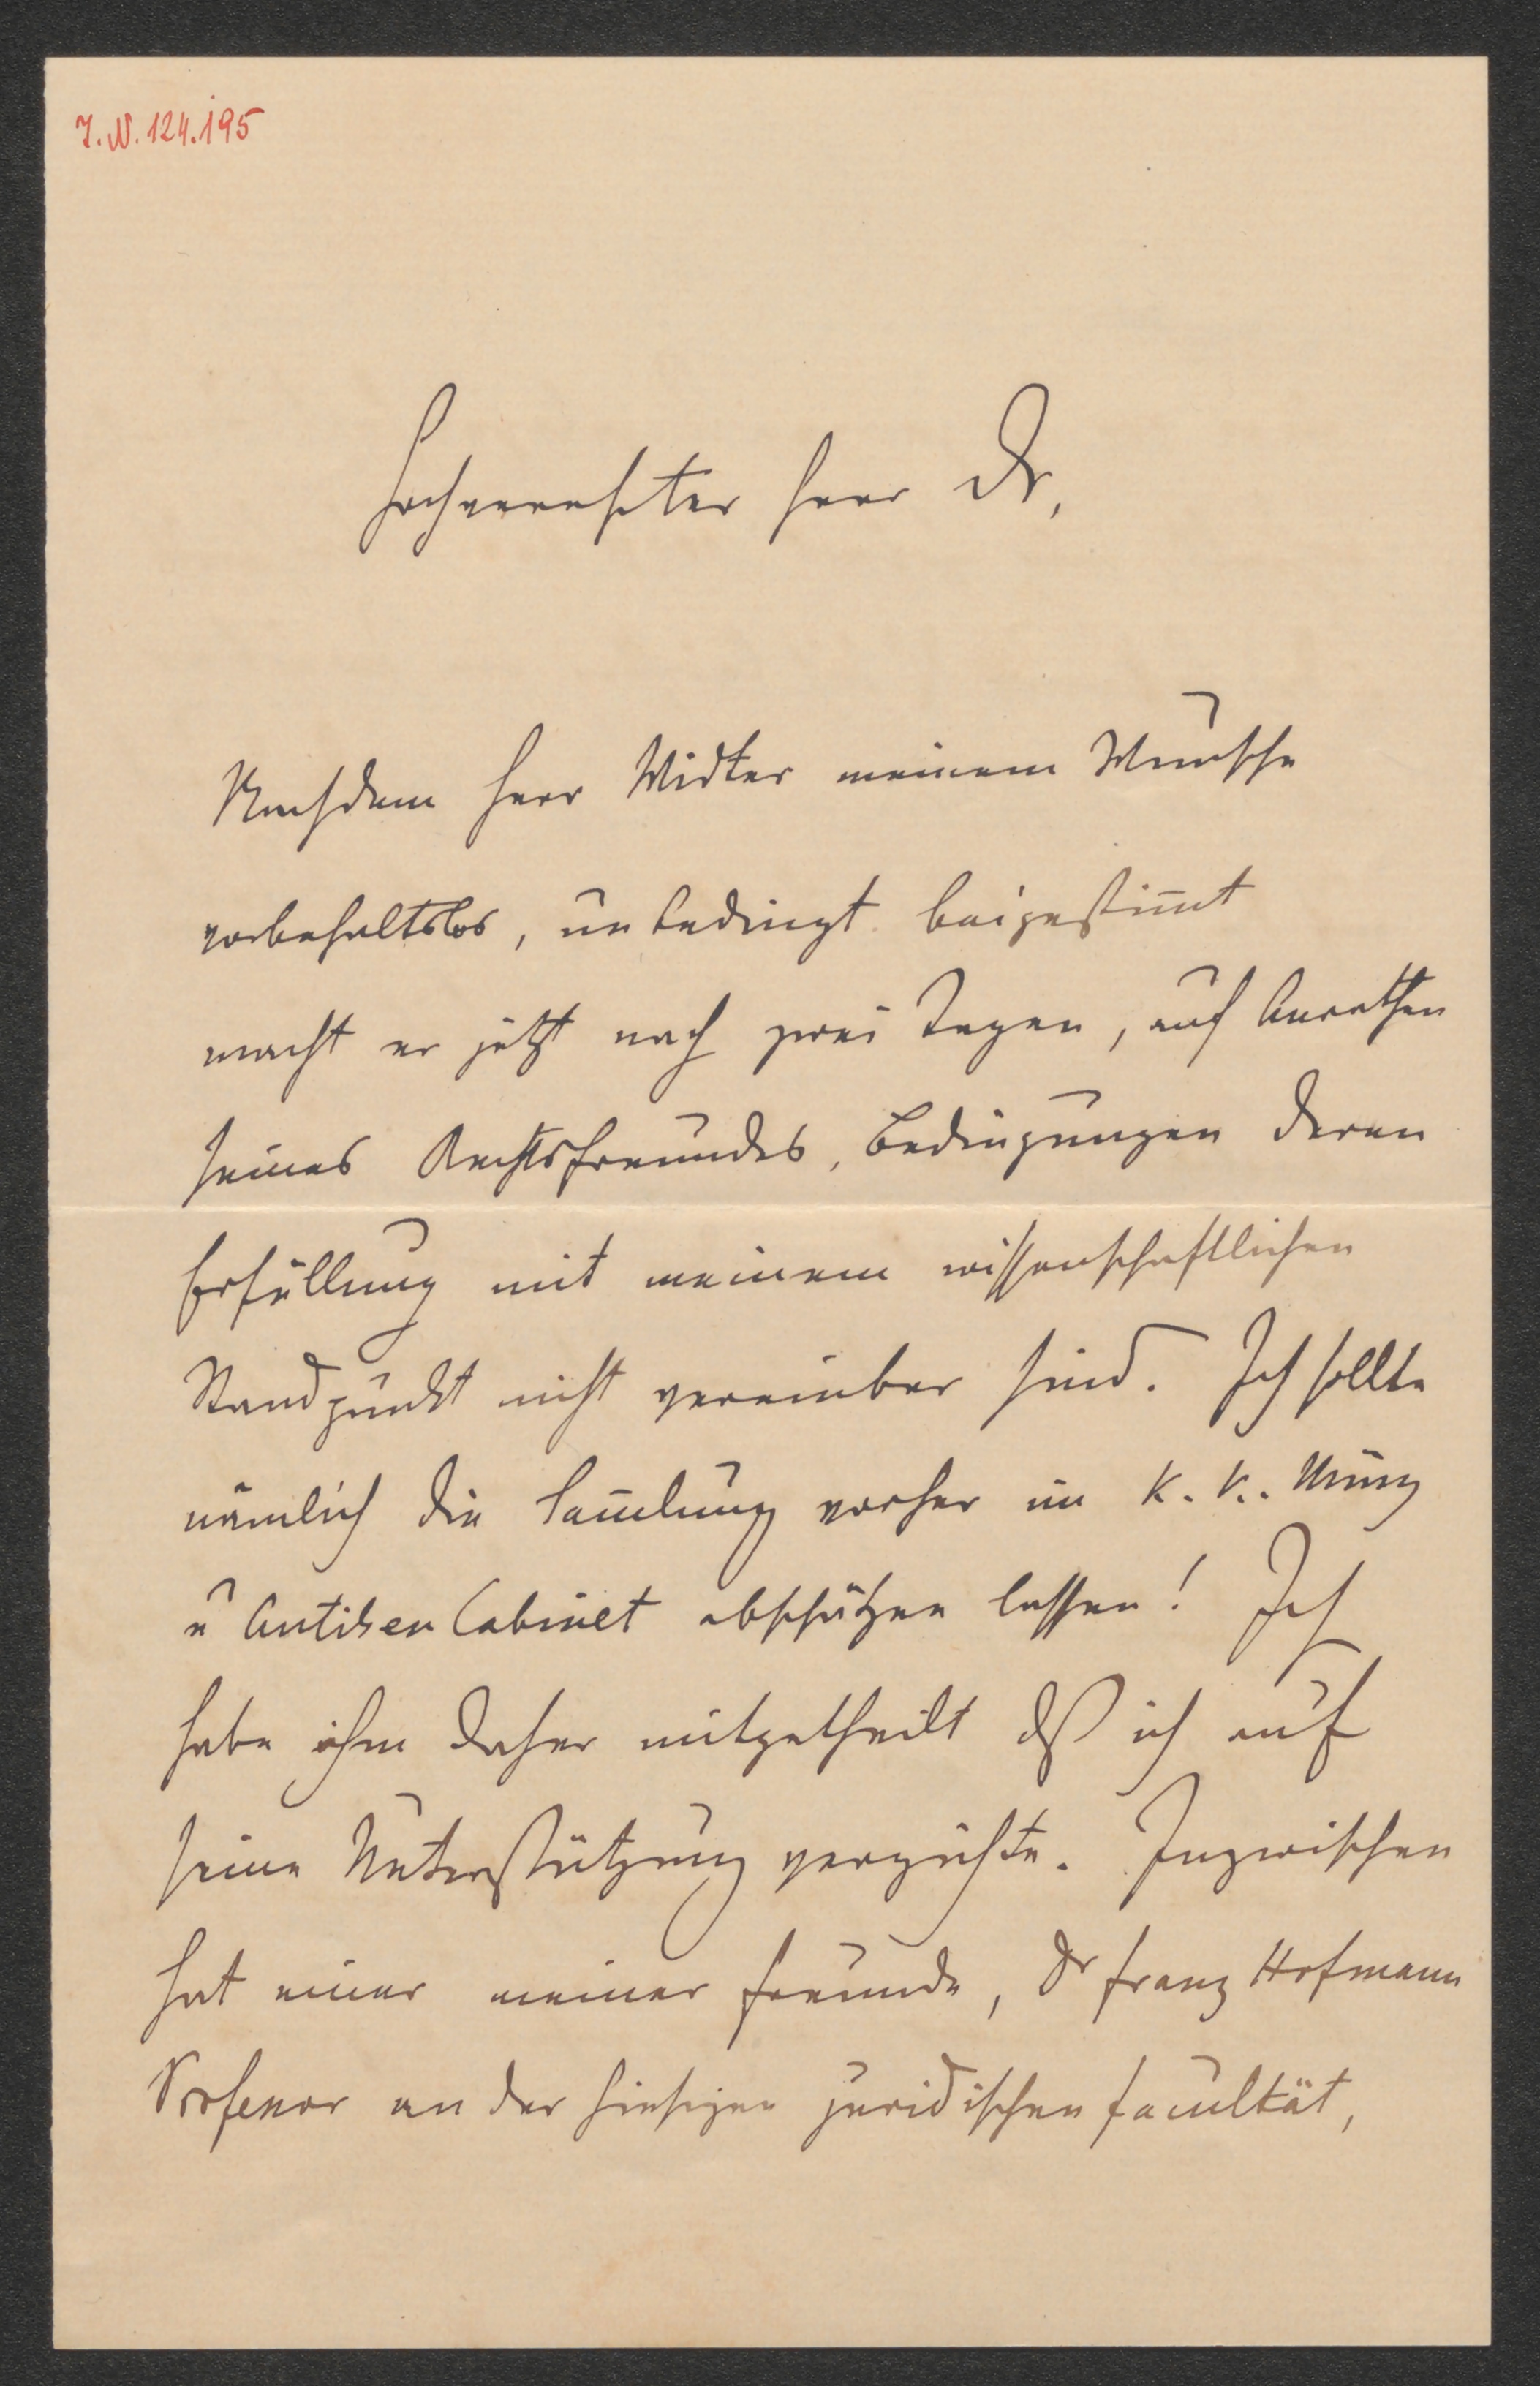 I. N. 124.195
Hochverehrter Herr Dr,
Nachdem Herr Widter meinem Wunsche
vorbehaltslos, unbedingt beigestim̄t
macht er jetzt nach zwei Tagen, auf Anrathen
seines Rechtsfreundes, Bedingungen deren
Erfüllung mit meinem wissenschaftlichen
Standpunkt nicht vereinbar sind. Ich sollte
nämlich die Sam̄lung vorher im K. K. Münz
u Antiken Cabinet abschätzen lassen! Ich
habe ihm daher mitgetheilt dß ich auf
seine Unterstützung verzichte. Inzwischen
hat einer meiner Freunde, Dr Franz Hofmann
Professor an der hiesigen juridischen Facultät,